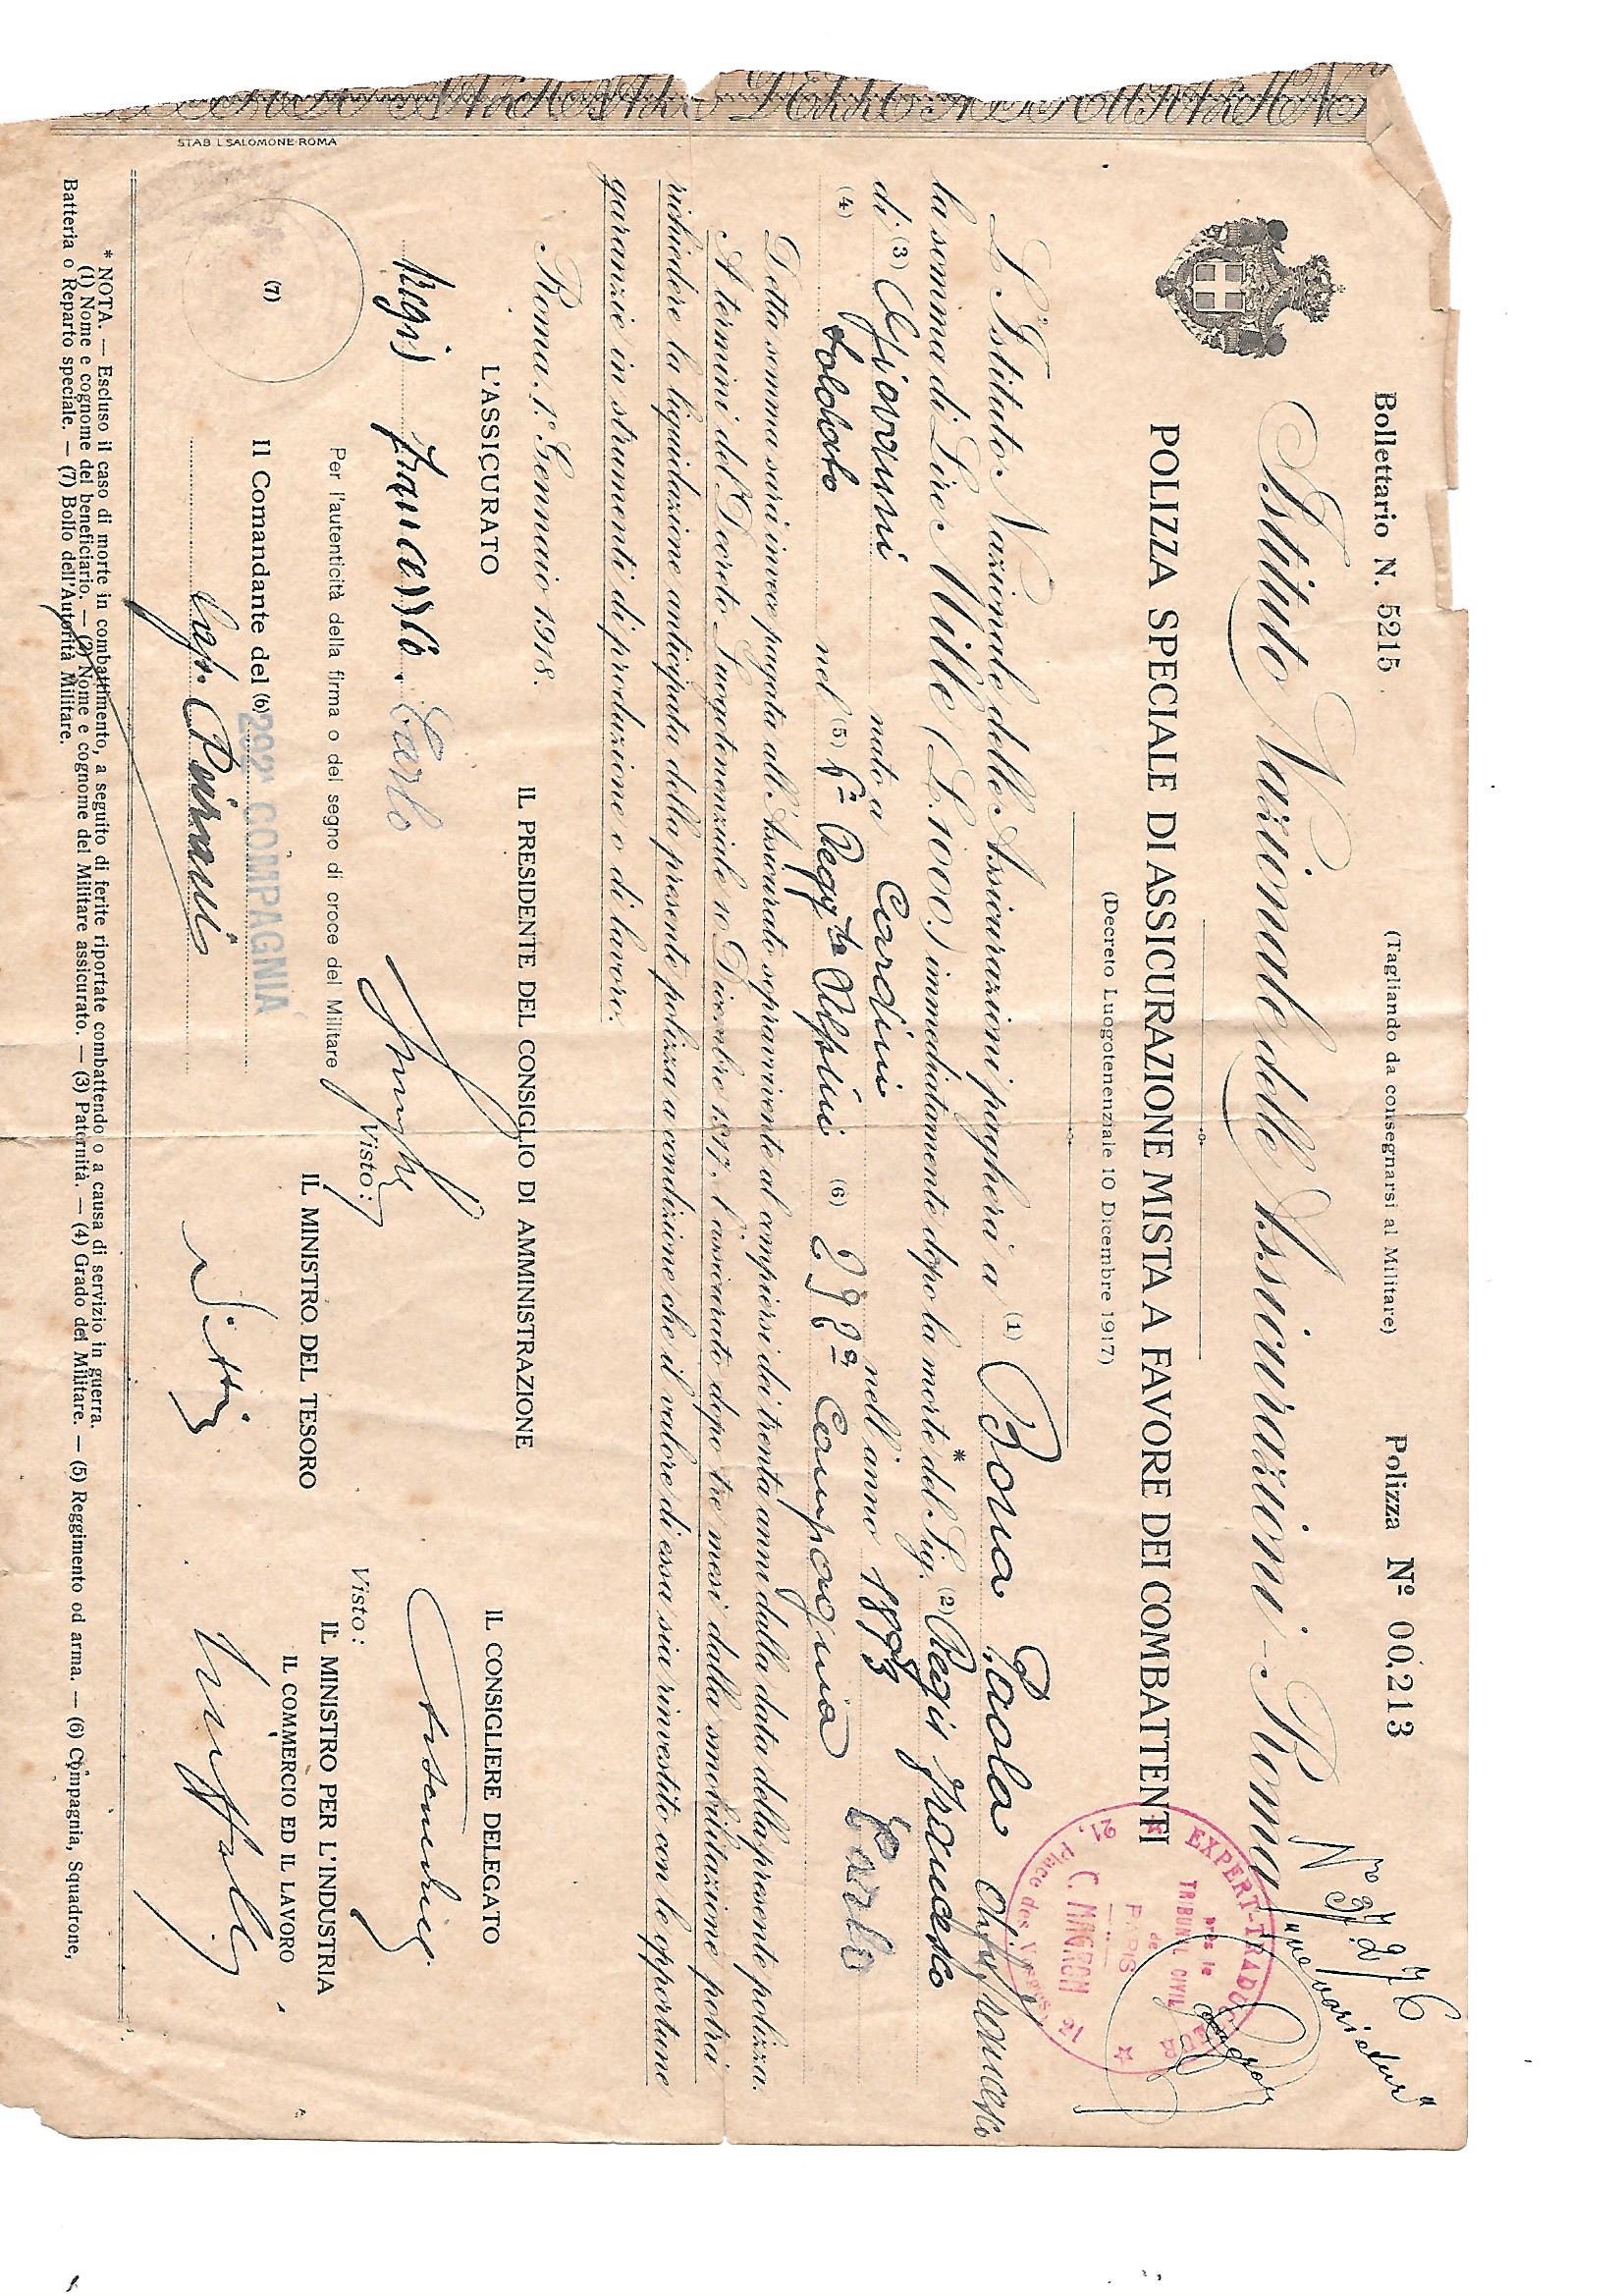 Bollettario N. 5215 (Tagliando da consegnarsi al Militare) Polizza Nº 00,213
Nº 37.276
"ne varietur"
Magron
Istituto Nazionale delle Assicurazioni - Roma
EXPERT-TRADUCTEUR
près le
TRIBUNAL CIVIL
de
PARIS
C. MAGRON
21, Place des Vosges, 21
POLIZZA SPECIALE DI ASSICURAZIONE MISTA A FAVORE DEI COMBATTENTI
(Decreto Luogotenenziale 10 Dicembre 1917)
L'Istituto Nazionale delle Assicurazioni pagherà a (1) Bona Paola di fu Francesco
la somma di Lire Mille (L. 1000.) immediatamente dopo la morte* del Sig. (2) Regis Francesco
di (3) Giovanni nato a Cardini nell'anno 1893 Carlo
(4) Soldato nel (5) 6º Reggto Alpini (6) 292ª Compagnia
Detta somma sarà invece pagata all'Assicurato sopravvivente al compiersi dei trenta anni dalla data della presente polizza.
A termini del Decreto Luogotenenziale 10 Dicembre 1917, l'assicurato dopo tre mesi dalla smobilitazione potrà
richiedere la liquidazione anticipata della presente polizza a condizione che il valore di essa sia rinvestito con le opportune
garanzie in strumenti di produzione o di lavoro.
Roma, 1º Gennaio 1918.
IL PRESIDENTE DEL CONSIGLIO DI AMMINISTRAZIONE
L'ASSICURATO
IL CONSIGLIERE DELEGATO
Regis Francesco. Carlo
Visto:
Visto:
Per l'autenticità della firma o del segno di croce del Militare
IL MINISTRO DEL TESORO
IL MINISTRO PER L'INDUSTRIA
IL COMMERCIO ED IL LAVORO
(7)
Il Comandante del (6) 292ª COMPAGNIA
Cap. Peirani
Nitti
STAB. L. SALOMONE-ROMA
* NOTA. — Escluso il caso di morte in combattimento, a seguito di ferite riportate combattendo o a causa di servizio in guerra.
(1) Nome e cognome del beneficiario. — (2) Nome e cognome del Militare assicurato. — (3) Paternità. — (4) Grado del Militare. — (5) Reggimento od arma. — (6) Compagnia, Squadrone,
Batteria o Reparto speciale. — (7) Bollo dell'Autorità Militare.